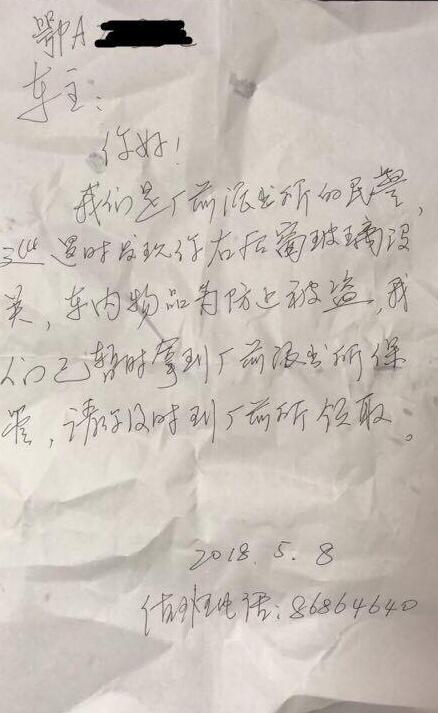 鄂A
车主：
你好！
我们是厂前派出所的民警，
巡逻时发现你右后窗玻璃没
关，车内物品为防止被盗，我
们已暂时拿到厂前派出所保
管，请你及时到厂前所领取。
2018.5.8
值班电话：86864640